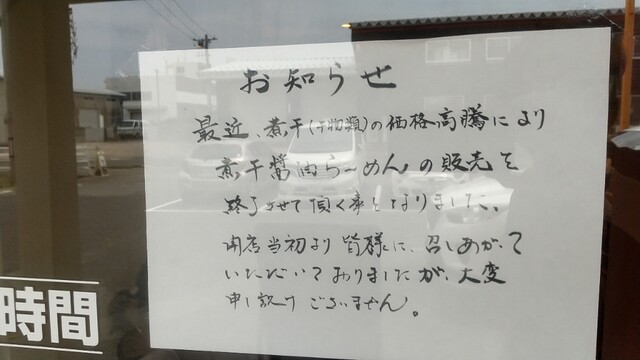 お知らせ
最近、煮干(干物類)の価格高騰により
煮干醤油らーめんの販売を
終了させて頂く事となりました。
開店当初より皆様に、召しあがって
いただいておりましたが、大変
申し訳けございません。
時間